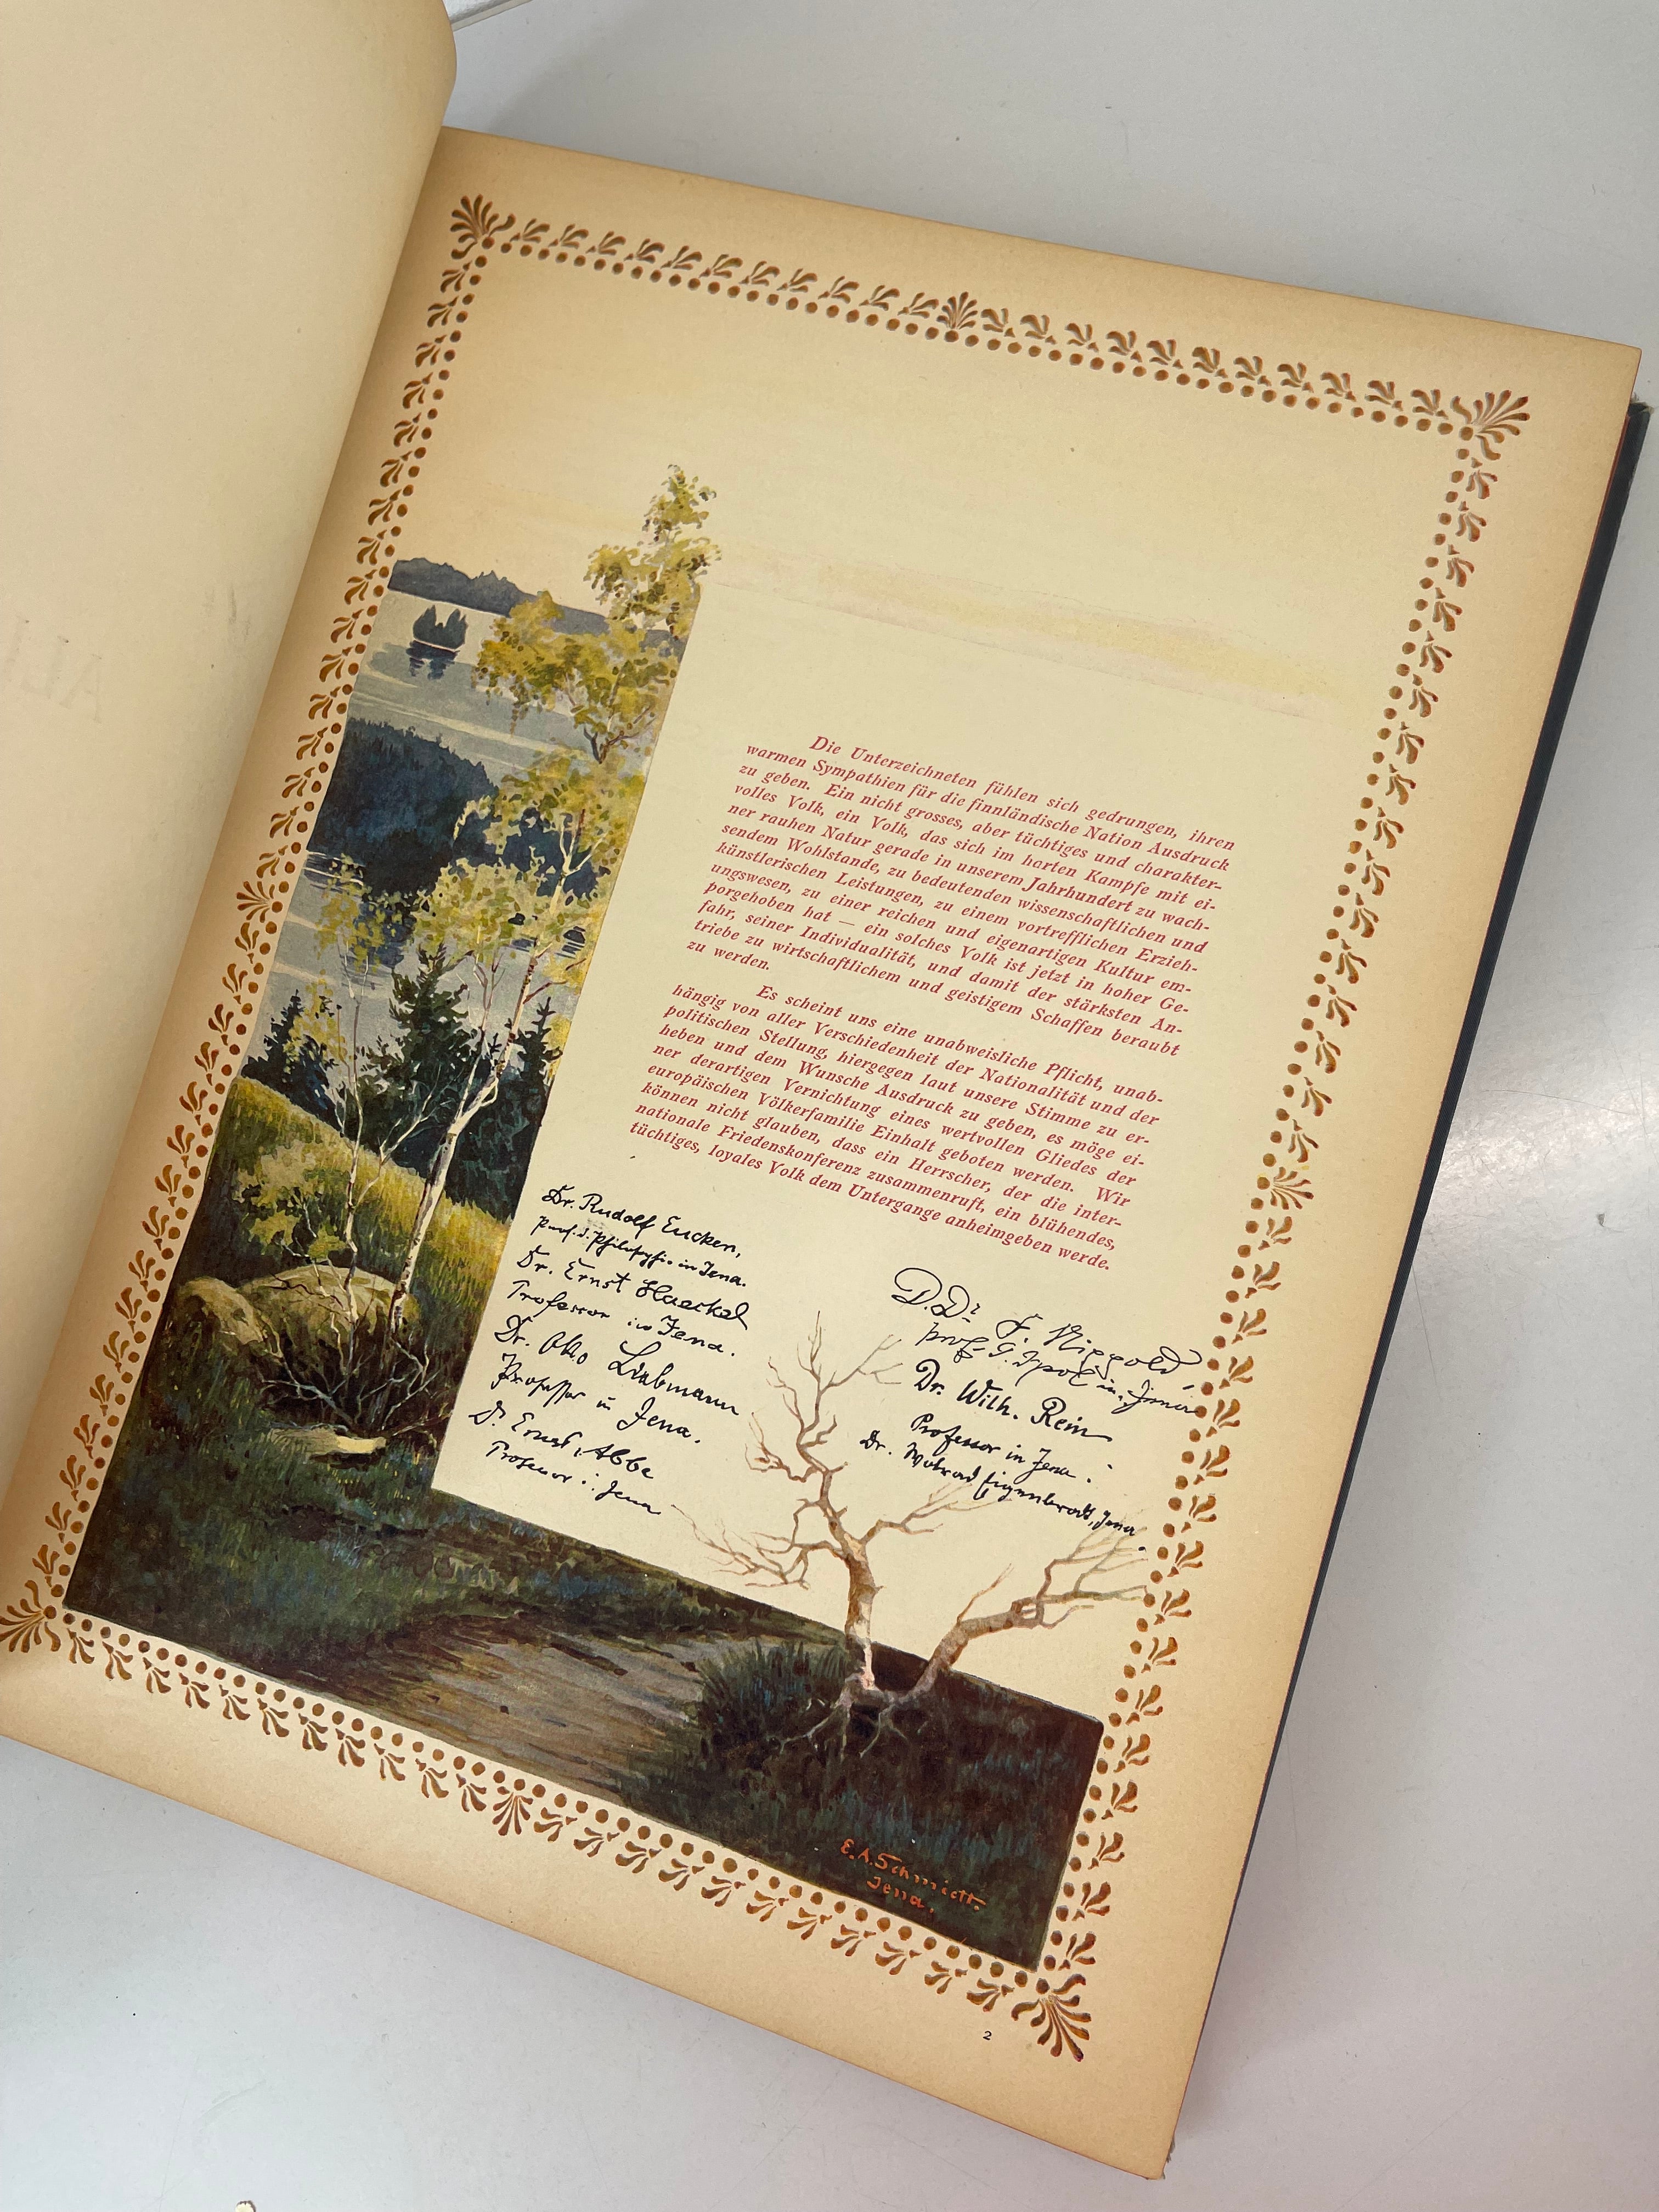 Die Unterzeichneten fühlen sich gedrungen, ihren
warmen Sympathien für die finnländische Nation Ausdruck
zu geben. Ein nicht grosses, aber tüchtiges und charakter-
volles Volk, ein Volk, das sich im harten Kampfe mit ei-
ner rauhen Natur gerade in unserem Jahrhundert zu wach-
sendem Wohlstande, zu bedeutenden wissenschaftlichen und
künstlerischen Leistungen, zu einem vortrefflichen Erzieh-
ungswesen, zu einer reichen und eigenartigen Kultur em-
porgehoben hat — ein solches Volk ist jetzt in hoher Ge-
fahr, seiner Individualität, und damit der stärksten An-
triebe zu wirtschaftlichem und geistigem Schaffen beraubt
zu werden.
Es scheint uns eine unabweisliche Pflicht, unab-
hängig von aller Verschiedenheit der Nationalität und der
politischen Stellung, hiergegen laut unsere Stimme zu er-
heben und dem Wunsche Ausdruck zu geben, es möge ei-
ner derartigen Vernichtung eines wertvollen Gliedes der
europäischen Völkerfamilie Einhalt geboten werden. Wir
können nicht glauben, dass ein Herrscher, der die inter-
nationale Friedenskonferenz zusammenruft, ein blühendes,
tüchtiges, loyales Volk dem Untergange anheimgeben werde.
Dr. Rudolf Eucken,
Prof. d. Philosophie in Jena.
Dr. Ernst Haeckel
Professor in Jena.
Dr. Otto Liebmann
Professor in Jena.
Dr. Ernst Abbe
Professor i. Jena
D. Dr. F. Nippold
Prof. in Jena
Dr. Wilh. Rein
Professor in Jena.
Dr. Eigenbrodt, Jena.
E.A. Schmidt.
Jena.
2